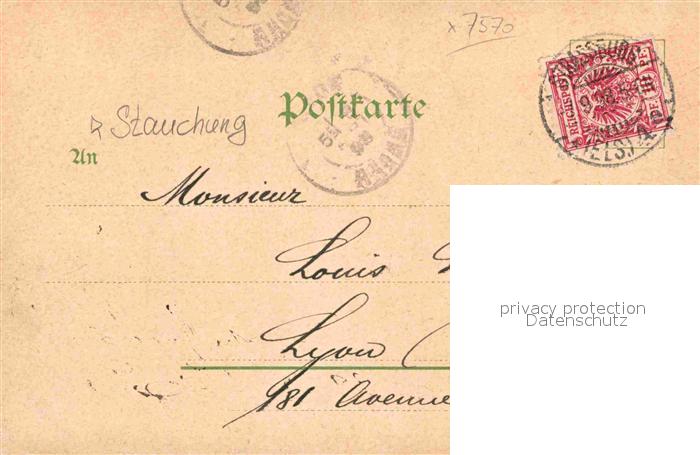 x 7570
REICHSPOST
Postkarte
Stauchung
An
Monsieur
Louis
Lyon
181 Avenue
privacy protection
Datenschutz